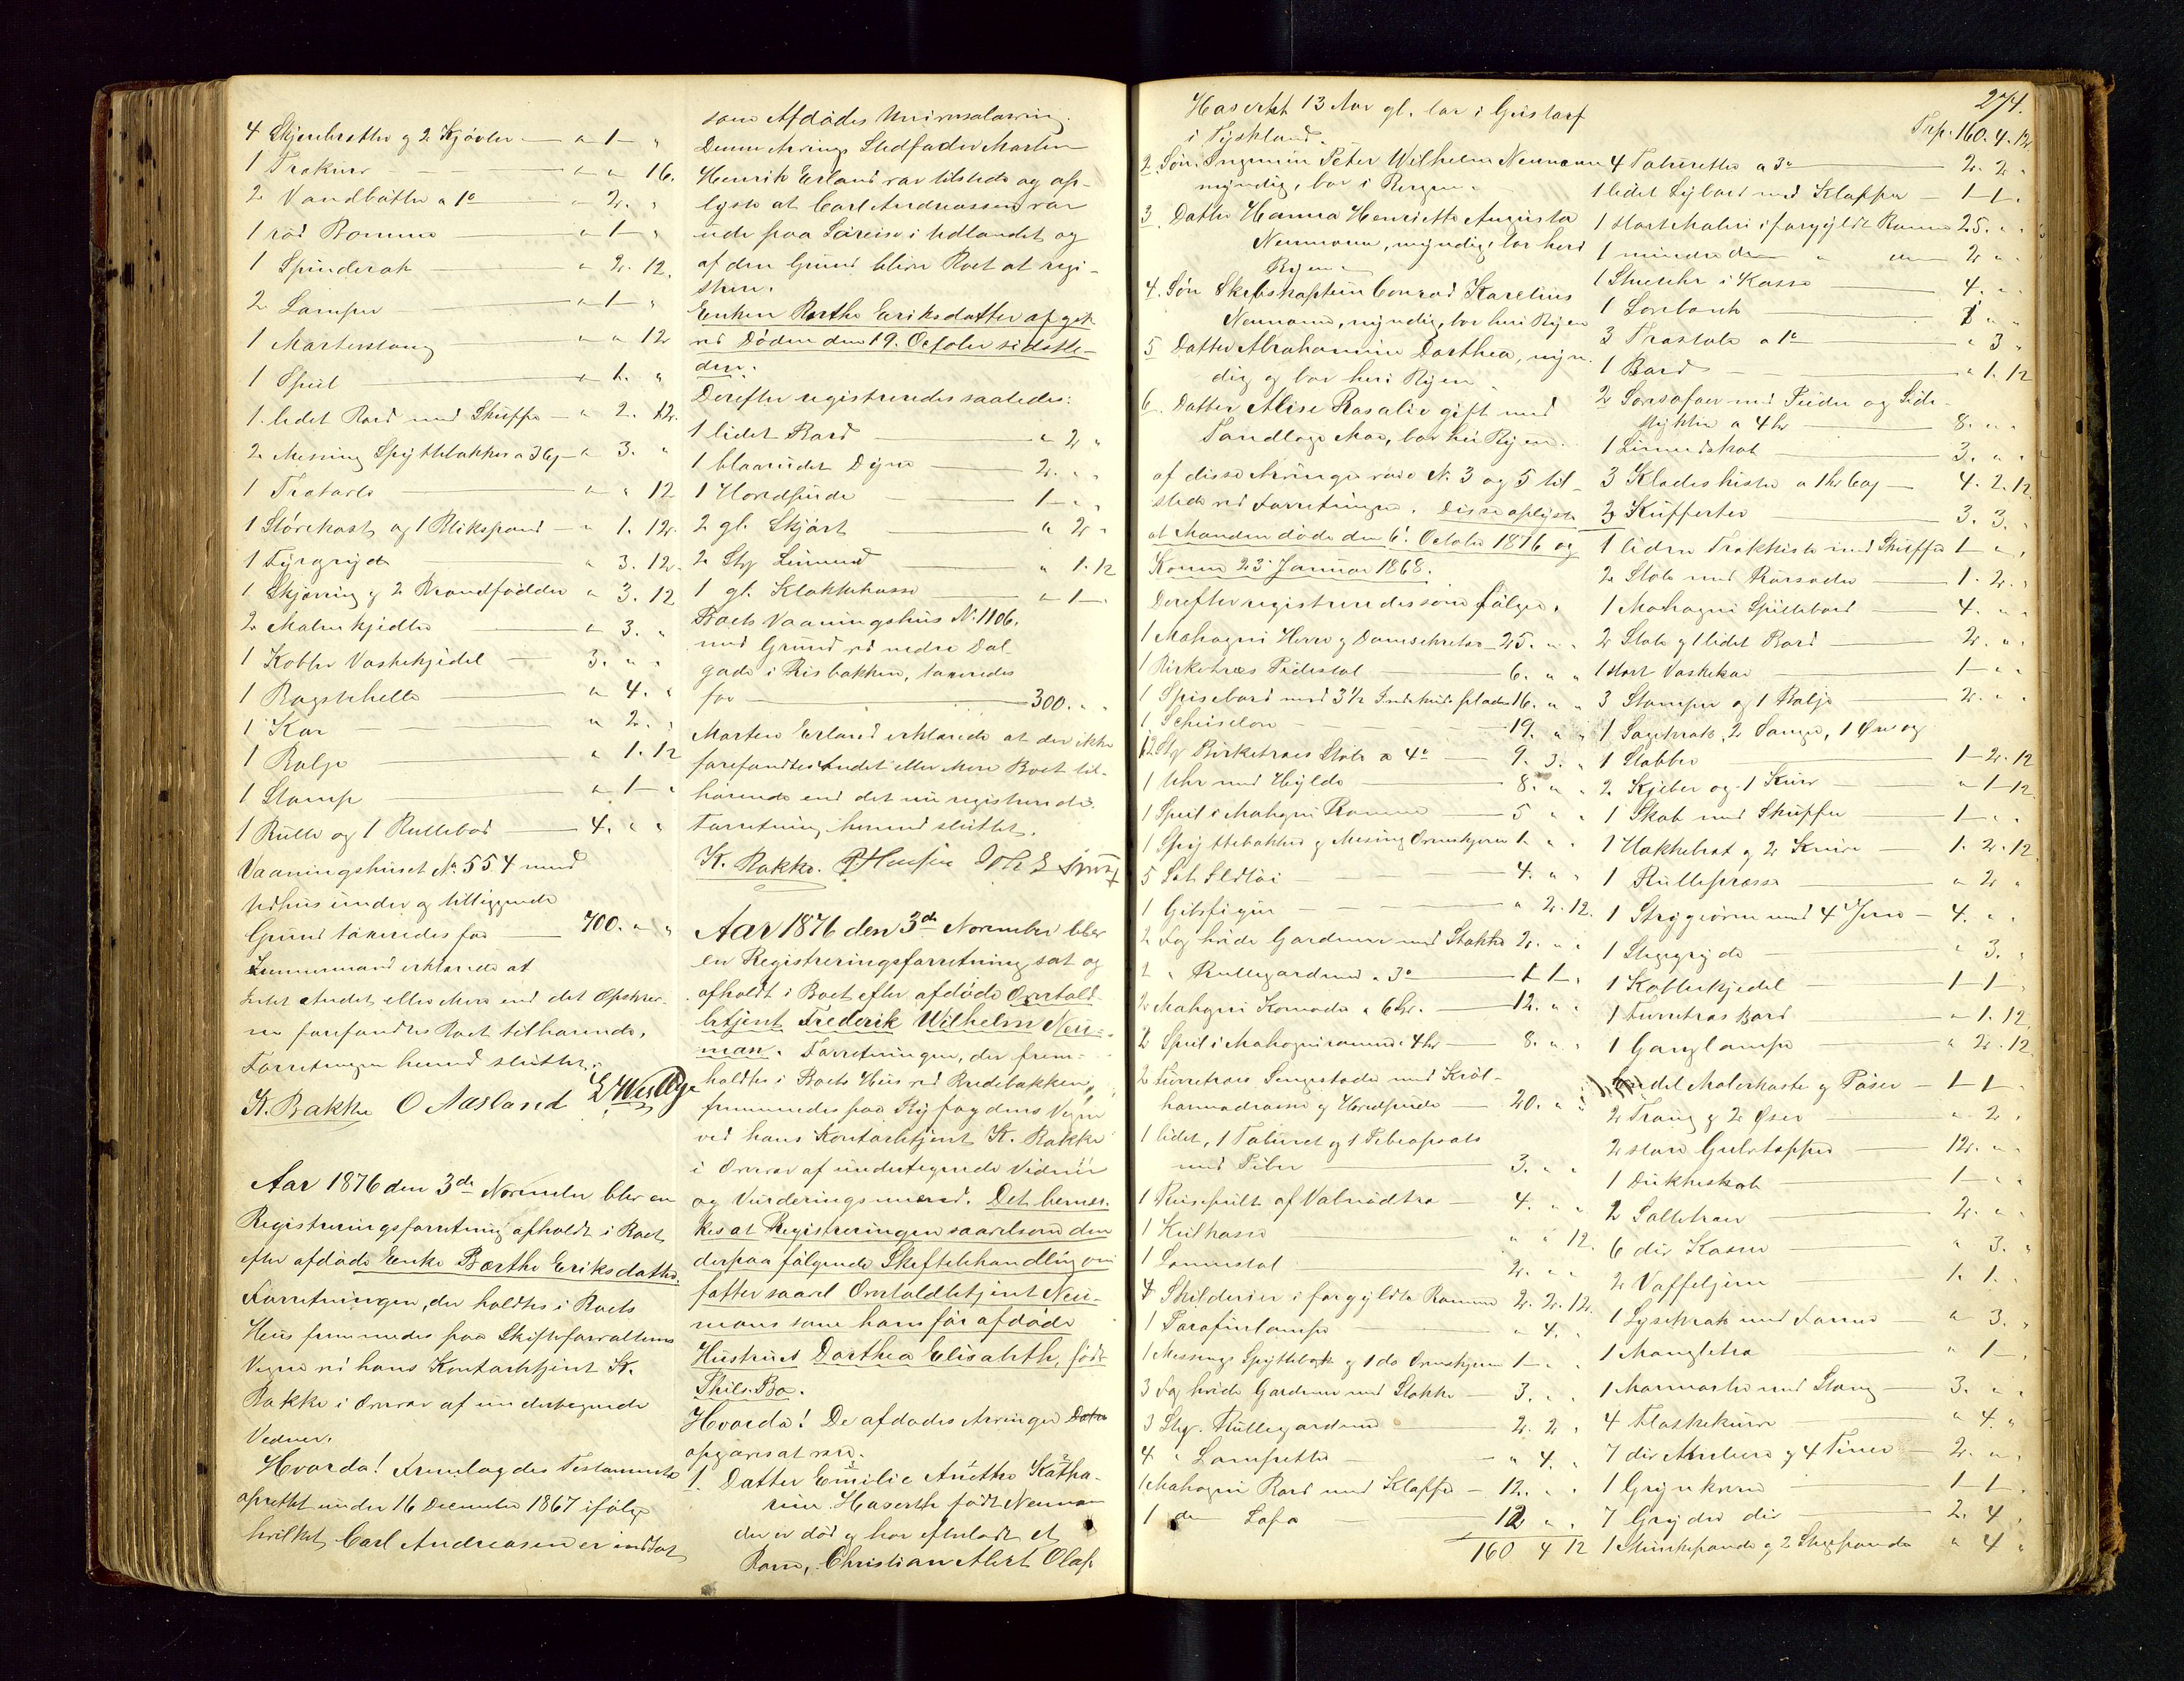 4 Skjærebretter og 2 Kjævler — " 1 — "
1 Trækurv — " " 16.
2 Vandbøtter a 1° — " 2. "
1 rød Bomme — " 1 — "
1 Spinderok — " 2. 12.
2 Lamper — " 1 — "
1 — " " 12
1 Speil — " 1. "
1 lidet Bord med Skuffe — " 2. 12.
2 Messing Spyttebakker a 36 — " 3. "
1 — " " 12
1 og 1 Blikspand — " 1. 12.
1 Fyrgryde " 3. 12.
1 Skjæring og 2 Brandfødder " 3. 12
2 Malmkjedler " 3. "
1 Kobber Vaskekjedel — 3. " "
1 Bagstehelle — " 4. "
1 Kar — " 2. "
1 Balje — " 1. 12
1 Stamp — " 1 — "
1 Rulle og 1 Rullebord — 4. " "
Vaaningshuset No. 554 med
Udhus under og tilliggende
Grund taxeredes for — 700. " "
erklærede at
Intet Andet eller Mere end det Opskrev-
ne forefandtes Boet tilhørende.
Forretningen hermed sluttet.
K. Bakke O Aasland
Aar 1876 den 3de November blev en
Registreringsforretning afholdt i Boet
efter afdøde Enke Berthe Eriksdatter.
Forretningen, der holdtes i Boets
Huus fremmedes paa Skifteforvalterens
Vegne ved hans Kontorbetjent K.
Bakke i Overvær af undertegnede
Vidner.
Hvorda! Fremlagdes Testamente
oprettet under 16 December 1867 ifølge
hvilket Carl Andreasen er indsat
som Afdødes Universalarving.
Denne Arvings Stedfader Morten
Henrik Erland var tilstede og op-
lyste at Carl Andreassen var
ude paa Søreise i Udlandet og
af den Grund bliver Boet at regi-
strere.
Enken Berthe Eriksdatter afgik
ved Døden den 19. October sidstle-
den.
Derefter registreredes saaledes:
1 lidet Bord — " 2 "
1 blaarudet Dyne — 2. " "
1 Hovedpude — 1 — "
2 gl. Skjørt — " 2 "
2 Stkr Linned — " 1. 12
1 gl. Klokkekasse — " 1 — "
Boets Vaaningshus No. 1106.
med Grund ved nedre Dal-
gade i Risbakken, taxeredes
for — 300. " "
Morten Erland erklærede at der ikke
forefandtes Andet eller Mere Boet til-
hørende end det nu registrerede.
Forretning hermed sluttet.
K. Bakke. P. Hansen
Aar 1876 den 3de November blev
en Registreringsforretning sat og
afholdt i Boet efter afdøde Overtold-
betjent Frederik Wilhelm Neu-
man. Forretningen, der frem-
holdtes i Boets Hus ved Bredebakken,
fremmedes paa Byfogdens Vegne
ved hans Kontorbetjent K. Bakke
i Overvær af undertegnede Vidner
og Vurderingsmænd. Det bemær-
kes at Registreringen saavelsom den
derpaa følgende Skiftebehandling om-
fatter saavel Overtoldbetjent Neu-
mans som hans før afdøde
Hustrues Dorthea Elisabeth, født
Thils. Bo.
Hvorda! De afdødes Arvinger
opgaves at være.
1. Datter Emilie Anette Katha-
rine Haserth født Neuman
der er død og har efterladt et
Barn, Christian Albert Olaf
274.
Haserht 13 Aar gl. bor i
i Tydskland.
2. Søn. Peter Wilhelm Neumann
myndig, bor i Bergen.
3. Datter Hanna Henriette Augusta
Neumann, myndig, bor her i
Byen.
4. Søn Skibskaptein Conrad Karelius
Neumann, myndig, bor her i Byen
5 Datter Abrahamine Dorthea, myn-
dig og bor her i Byen.
6. Datter Alise Rosalie gift med
Tandlæge Moe, bor her i Byen.
af disse Arvinger vare N. 3 og 5 til-
stede ved Forretningen. Disse oplyste
at Manden døde den 6. October 1876 og
Konen 23 Januar 1868.
Derefter registreredes som følger.
1 Mahogni Herre og Damesekretær 25. " "
1 Birketræes Pidestal — 6. " "
1 Spisebord med 3½ plader 16. " "
1 Schaiselon — 19. " "
12 Stkr Birketræes Stole a 4° — 9. 3. "
1 Uhr med Hylde — 8. " "
1 Speil i Mahogni Ramme — 5 " "
1 Spyttebakke og Messing Ovnskjerm 1 " "
5 — 4. " "
1 Gibsfigur — " 2. 12.
2 Fag hvide Gardiner med Stokke 2. " "
2 " Rullegardiner a 3° — 1 1 "
2 Mahogni Komoder a 6 — 12. " "
2 Speil i Mahogniramme a 4 — 8. " "
2 Furretræes Sengestæder med Krøl-
haarmadrasse og Hovedpude — 20. " "
1 lidet, 1 Taburet og 1 Pibeopsats
med Piber — 3. " "
1 af Valnødtræ — 4. " "
1 Kulkasse — " " 12.
1 Lænestol — 2. " "
4 Skilderier i forgyldte Rammer 2. 2. 12.
1 Parafinlampe — " 4. "
1 Messings Spyttebak og 1 do Ovnskjerm 1 — "
3 Fag hvide Gardiner med Stokke — 3. " "
3 Stkr. Rullegardiner — 2. 2 "
4 " Lampetter — " 4. "
1 Mahogni Bord med Klapper — 12. " "
1 do Sofa — 12 " "
160 4 12
Trsp. 160. 4. 12.
4 Taburetter a 3° — 2. 2 "
1 lidet Sybord med Klapper — 1 1 "
1 stort Maleri i forgyldt Ramme 25. " "
1 mindre do " do 2 " "
1 Stueuhr i Kasse — 4. " "
1 — 1 " "
3 Træstole a 1° — " 3 "
1 Bord — " 1. 12
2 Sovesofaer med Puder og Side-
stykker a 4 — 8. " "
1 Linnedskab — 3. " "
3 Klædeskister a 1 — 4. 2. 12
3 Kufferter — 3. 3. "
1 liden Trækkiste med Skuffer 1 — "
2 Stole med Rørsæder — 1. 2. "
1 Mahogni Spillebord — 4. " "
2 Stole og 1 lidet Bord — 2. " "
1 stort Vaskekar — 1 — "
3 Stamper og 1 Balje — 2. " "
1 Sagkrak, 2 Sauge, 1 Øxe og
1 Stabbe — 1 — 2. 12
2 Kjeber og 1 Kurv — " 1 — 12
1 Skab med Skuffer — 1 — "
1 Hakkebret og 2 Knive — 1. 2. 12
1 Rullepresse — " 2 "
1 Strygeovn med 4 Jern — 4. " "
1 Stegegryde — " 3. "
1 Kobberkjedel — 1 1 "
1 Furretræs Bord — " 1. 12
1 Ganglampe — " 2. 12
Endel Malerkoste og Pøser — 1 1 "
2 Traug og 2 Øser — " 2 "
2 store Gulvtepper — 12. " "
1 Dækkeskab — 1 — "
2 — 2. " "
6 div Kasser — " 3. "
2 Vaffeljern — 1. 1. "
1 Lysekrak med Forme — " 3. "
1 Mangletræ — " 1 — "
1 med Stang — 3. " "
4 Flaskekurve — " 4. "
7 div Ambere og 4 Tiner — 2. " "
1 Grynkværn — 1 1 "
7 Gryder div — 2. 4 "
1 og 2 Stegepander " 4 "